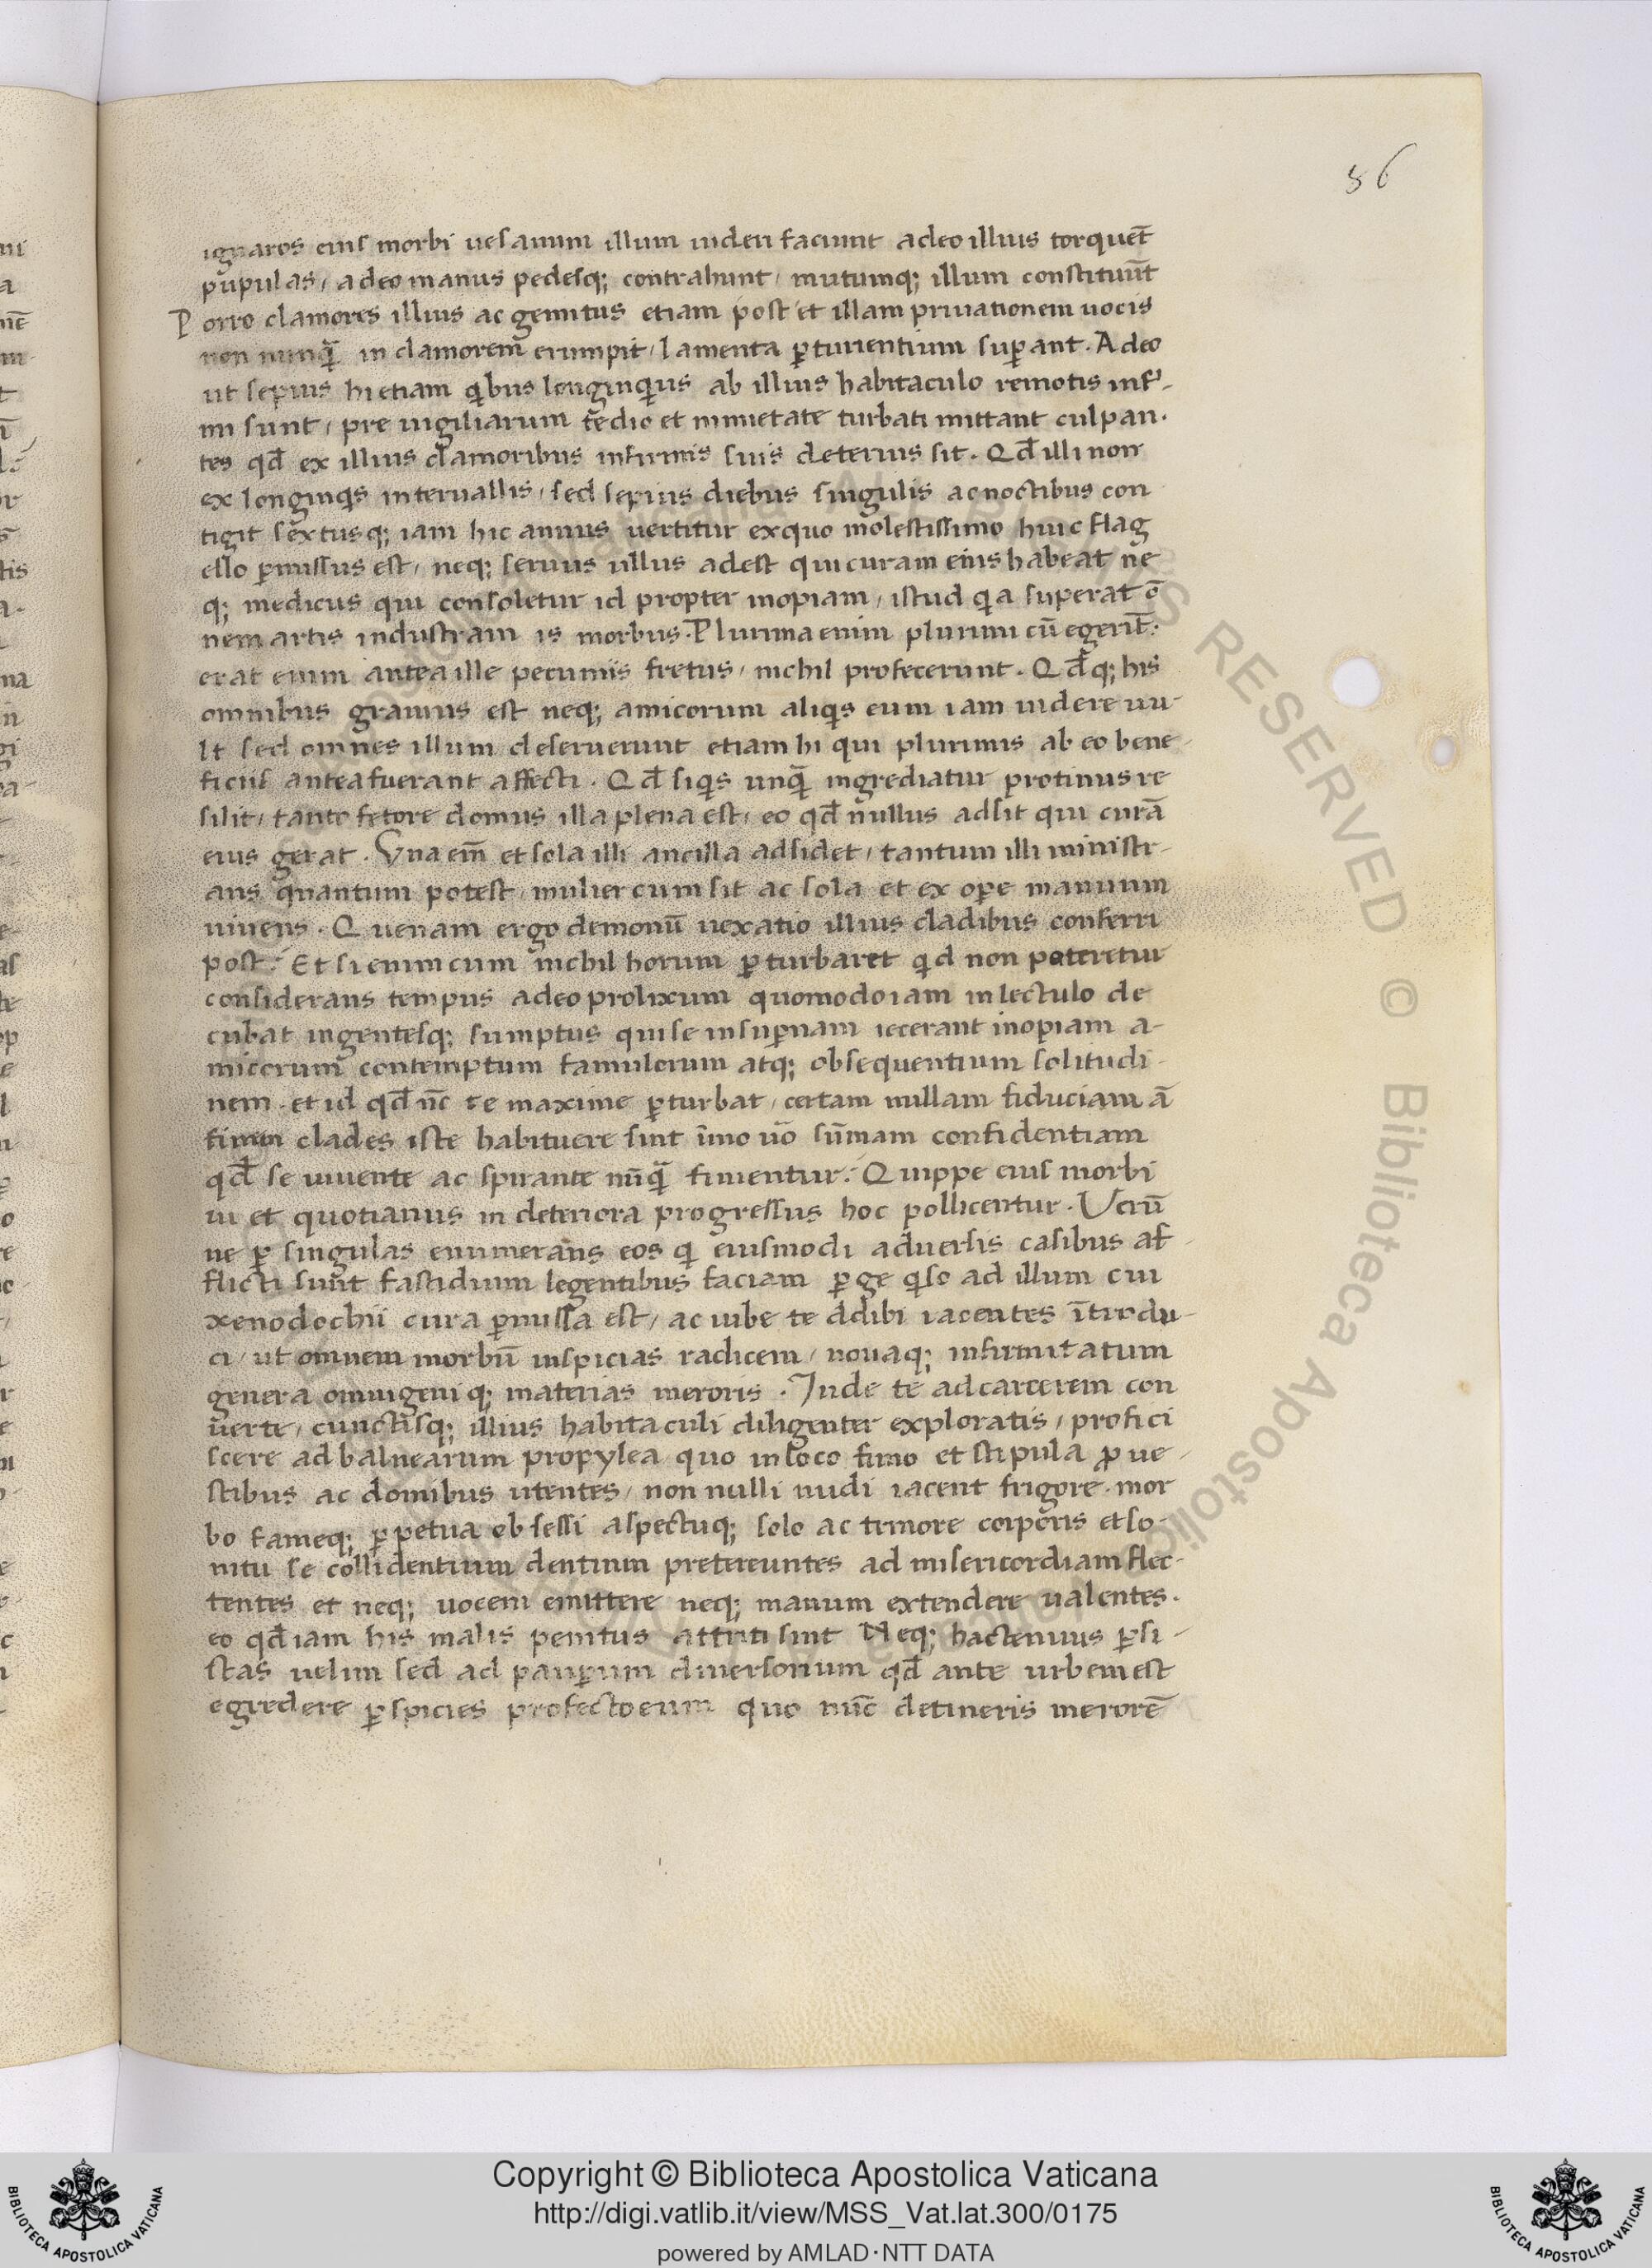 86
ignaros eius morbi uesanum illum uideri faciunt adeo illius torquēt
pupulas, adeo manus pedesq; contrahunt, mutumq; illum constituūt
Porro clamores illius ac gemitus etiam post et illam priuationem uocis
non nunq̄ in clamorem erumpit, lamenta ꝑturientium suꝑant. Adeo
ut sepius hi etiam qibus longinquius ab illius habitaculo remotis infir-
mi sunt, pre uigiliarum tedio et nimietate turbati mittant culpan-
tes qd̄ ex illius clamoribus infirmis suis deterius sit. Qd̄ illi non
ex longinqis interuallis, sed sepius diebus singulis ac noctibus con
tigit sextusq; iam hic annus uertitur exquo molestissimo huic flag
ello ꝑmissus est, neq; seruus ullus adest qui curam eius habeat ne
q; medicus qui consoletur id propter inopiam, istud qia superat ō
nem artis industriam is morbus. Plurima enim plurimi cū egerīt:
erat enim antea ille pecuniis fretus, nichil profecerunt. Qd̄q; his
omnibus grauius est neq; amicorum aliqis eum iam uidere uu-
lt sed omnes illum deseruerunt etiam hi qui plurimis ab eo bene-
ficiis antea fuerant affecti. Qd̄ siqis unq̄ ingrediatur protinus re
silit, tanto fetore domus illa plena est, eo qd̄ nullus adsit qui curā
eius gerat. Vna em̄ et sola illi ancilla adsidet, tantum illi ministr-
ans quantum potest, mulier cum sit ac sola et ex oꝑe manuum
uiuens. Quenam ergo demonū uexatio illius cladibus conferri
post: Et si enim cum nichil horum ꝑturbaret qid non pateretur
considerans tempus adeo prolixum quomodo iam in lectulo de
cubat ingentesq; sumptus qui se insuꝑnam iecerant inopiam a-
micorum contemptum famulorum atq; obsequentium solitudi-
nem. et id qd̄ nc̄ te maxime ꝑturbat, certam nullam fiduciam ā
finem clades iste habituere sint īmo uō sūmam confidentiam
qd̄ se uiuente ac spirante nūq̄ finientur: Quippe eius morbi
ui et quotianus in deteriora progressus hoc pollicentur. Verū
ne ꝑ singulas enumerans eos qi eiusmodi aduersis casibus af-
flicti sunt fastidium legentibus faciam ꝑge qiso ad illum cui
xenodochii cura ꝑmissa est, ac iube te ddibi iacentes ītrodu-
ci, ut omnem morbū inspicias radicem, nouaq; infirmitatum
genera omnigeniq; materias meroris. Inde te ad carcerem con
uerte, cunctisq; illius habitaculi diligenter exploratis, profici
scere ad balnearum propylea quo in loco fimo et stipula ꝓ ue-
stibus ac domibus utentes, non nulli nudi iacent frigore. mor
bo fameq; ꝑpetua obsessi aspectuq; solo ac tremore corporis et so-
nitu se collidentium dentium pretereuntes ad misericordiam flec-
tentes et neq; uocem emittere neq; manum extendere ualentes.
eo qd̄ iam his malis penitus attriti sint Neq; hactenus ꝑsi-
stas uelim sed ad pauꝑum diuersorium qd̄ ante urbem est
egredere ꝑspicies profecto eum quo nūc detineris merorē
Copyright © Biblioteca Apostolica Vaticana
http://digi.vatlib.it/view/MSS_Vat.lat.300/0175
powered by AMLAD·NTT DATA